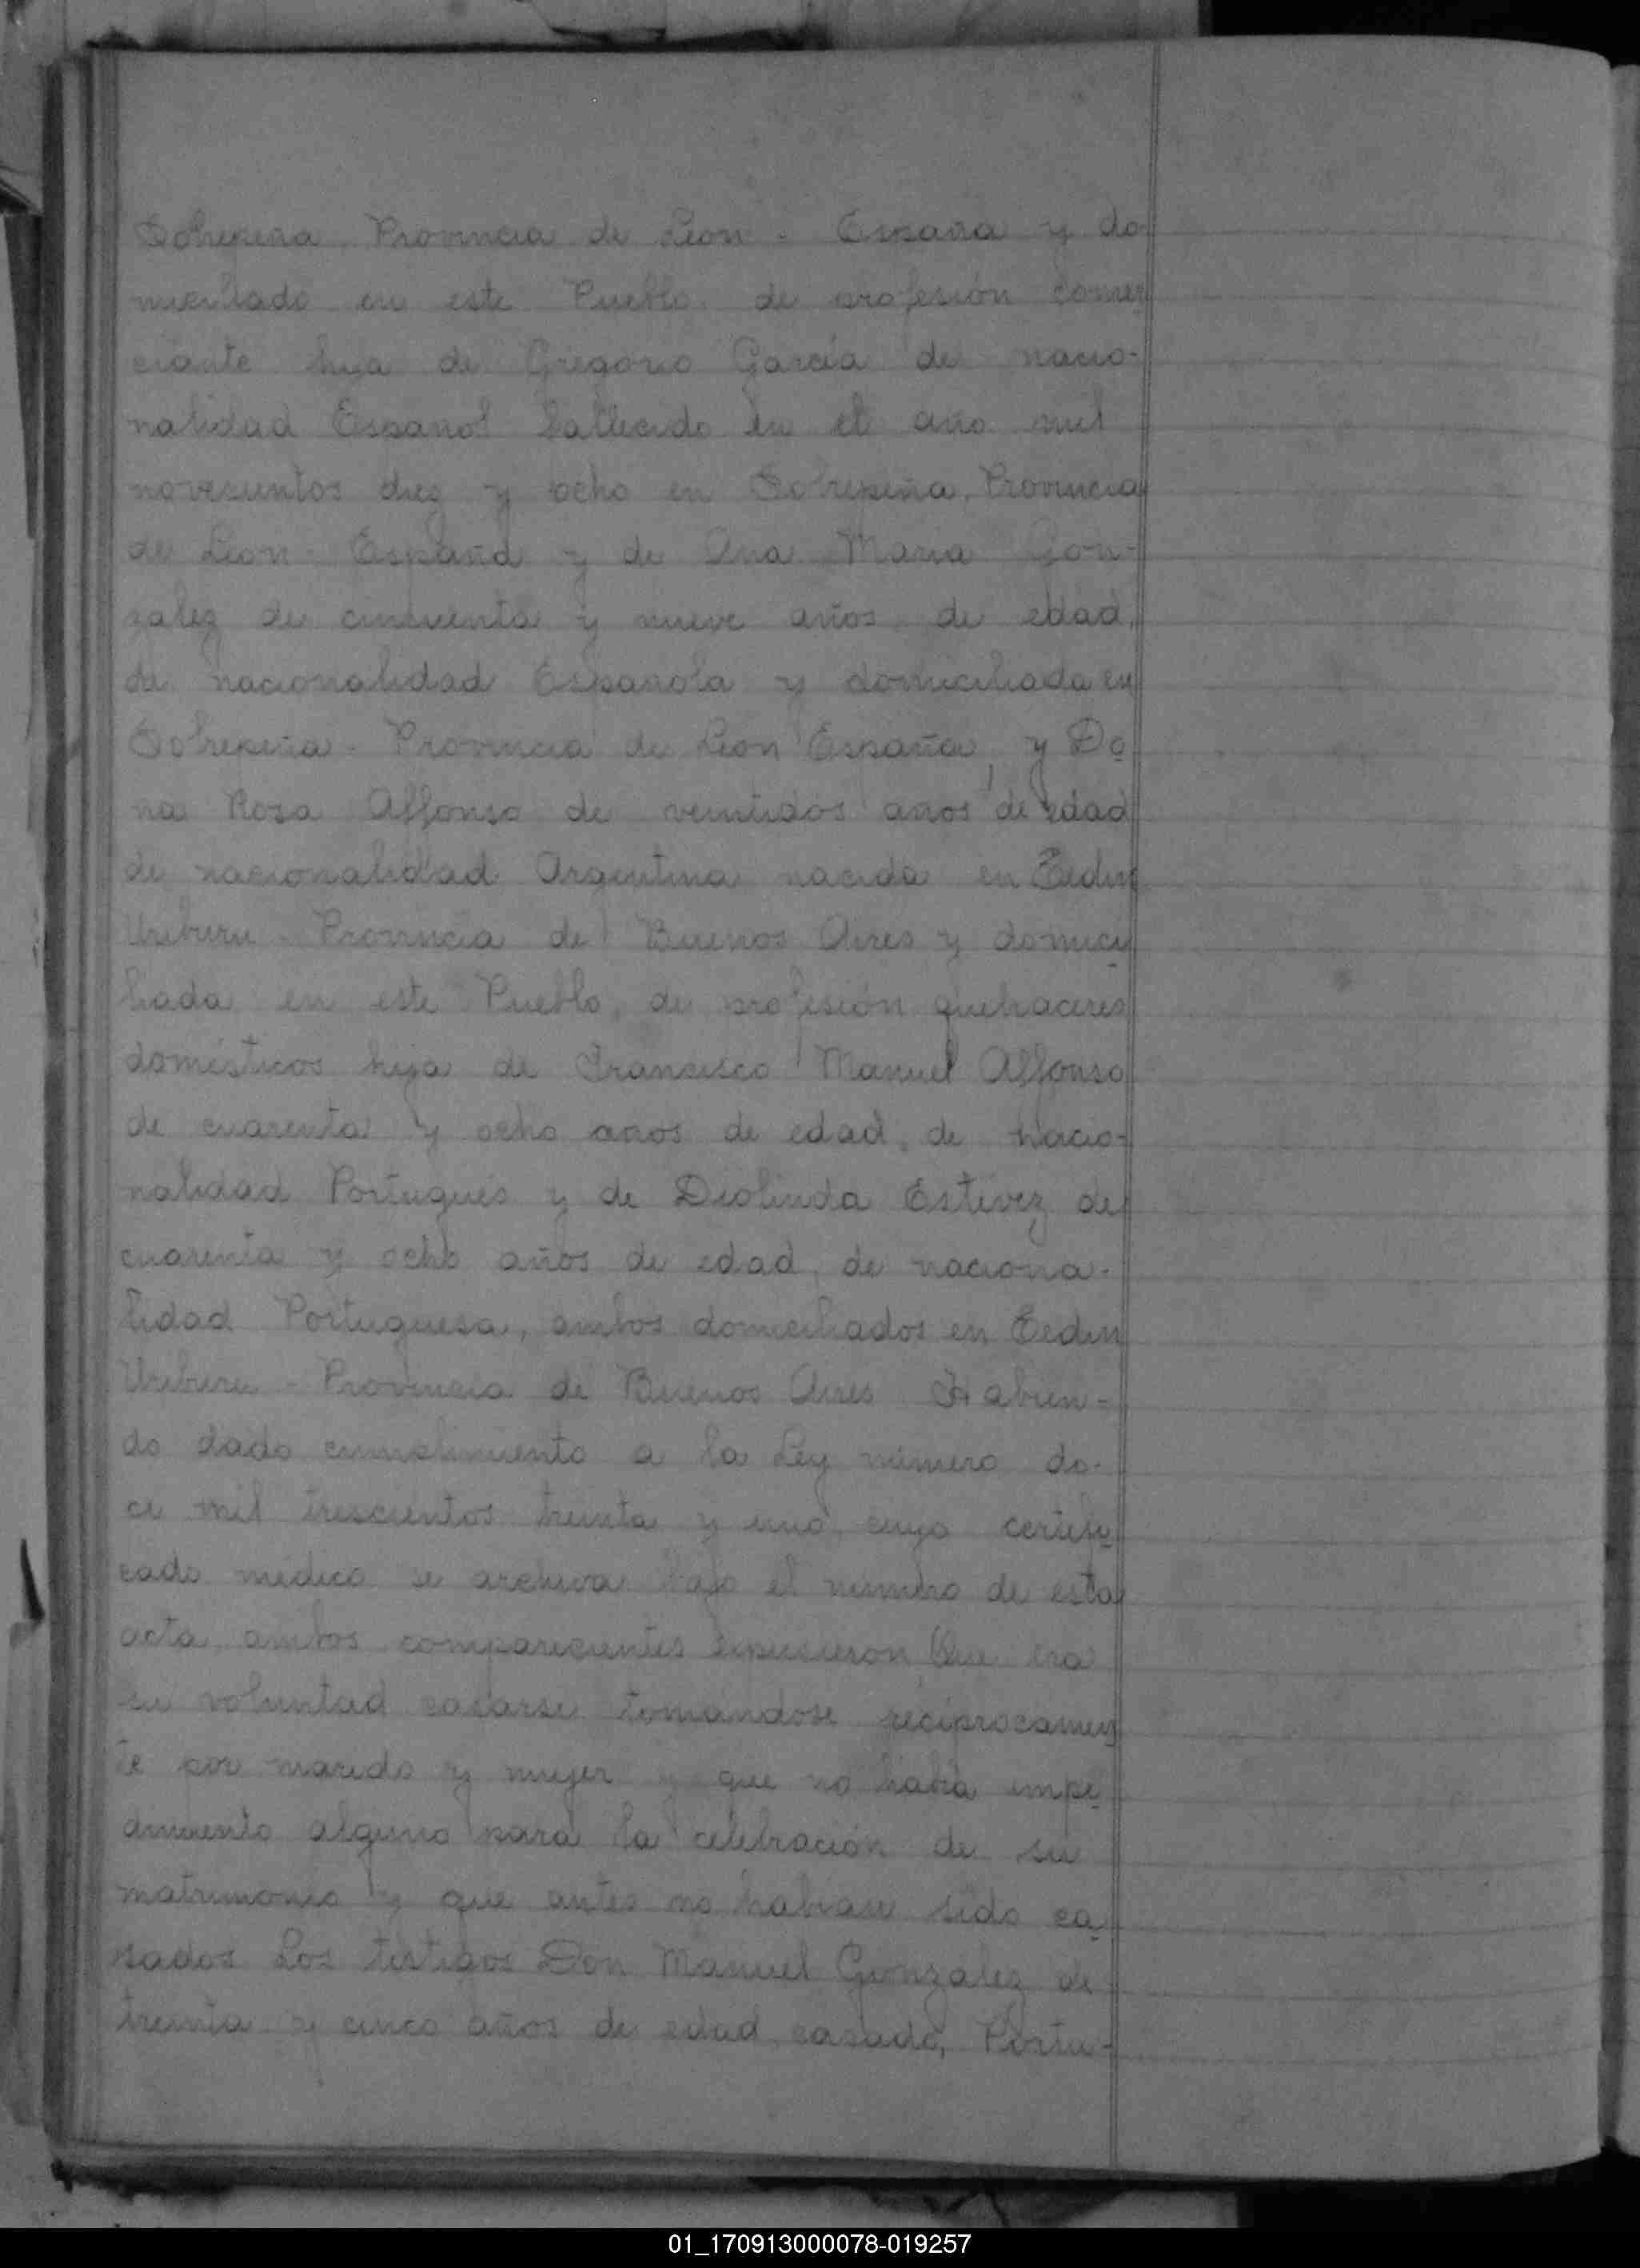 Sobrepeña, Provincia de Leon - España y do-
miciliado en este Pueblo, de profesión comer
ciante hijo de Gregorio García de nacio-
nalidad Español fallecido en el año mil
novecientos diez y ocho en Sobrepeña, Provincia
de Leon - España y de Ana María Gon-
zalez de cincuenta y nueve años de edad,
de nacionalidad Española y domiciliada en
Sobrepeña - Provincia de Leon España, y Do
ña Rosa Affonso de veintidos años de edad
de nacionalidad Argentina nacida en
Uriburu - Provincia de Buenos Aires y domici
liada en este Pueblo, de profesión quehaceres
domésticos hija de Francisco Manuel Affonso
de cuarenta y ocho años de edad, de nacio-
nalidad Portugués y de Diolinda Estevez de
cuarenta y ocho años de edad, de naciona-
lidad Portuguesa, ambos domiciliados en
Uriburu - Provincia de Buenos Aires Habien-
do dado cumplimiento a la Ley número do-
ce mil trescientos treinta y uno, cuyo certifi
cado médico se archiva bajo el número de esta
acta, ambos comparecientes expusieron Que era
su voluntad casarse tomándose recíprocamen
te por marido y mujer y que no había impe
dimento alguno para la celebración de su
matrimonio y que antes no habían sido ca
sados Los testigos Don Manuel Gonzalez de
treinta y cinco años de edad, casado, Portu-
01_170913000078-019257